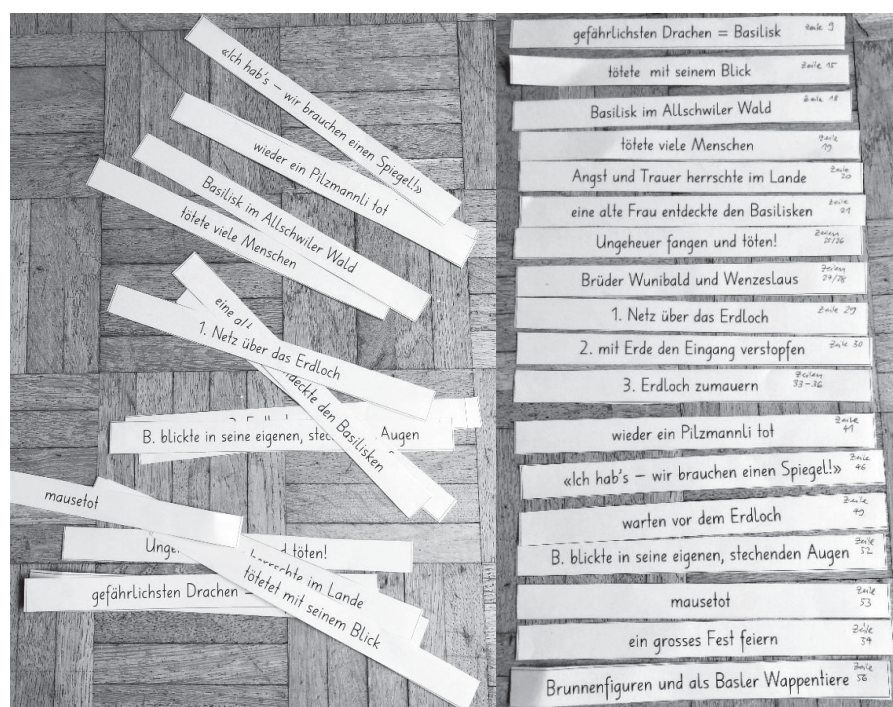 «Ich hab's – wir brauchen einen Spiegel!»
wieder ein Pilzmannli tot
Basilisk im Allschwiler Wald
tötete viele Menschen
eine
1. Netz über das Erdloch
den Basilisken
B. blickte in seine eigenen, Augen
mausetot
töten!
im Lande
gefährlichsten Drachen =
tötetet mit seinem Blick
gefährlichsten Drachen = Basilisk Zeile 9
tötete mit seinem Blick Zeile 15
Basilisk im Allschwiler Wald Zeile 18
tötete viele Menschen Zeile 19
Angst und Trauer herrschte im Lande Zeile 20
eine alte Frau entdeckte den Basilisken Zeile 21
Ungeheuer fangen und töten! Zeilen 25/26
Brüder Wunibald und Wenzeslaus Zeilen 27/28
1. Netz über das Erdloch Zeile 29
2. mit Erde den Eingang verstopfen Zeile 30
3. Erdloch zumauern Zeilen 33-36
wieder ein Pilzmannli tot Zeile 41
«Ich hab's – wir brauchen einen Spiegel!» Zeile 46
warten vor dem Erdloch Zeile 49
B. blickte in seine eigenen, stechenden Augen Zeile 52
mausetot Zeile 53
ein grosses Fest feiern Zeile
Brunnenfiguren und als Basler Wappentiere Zeile 56